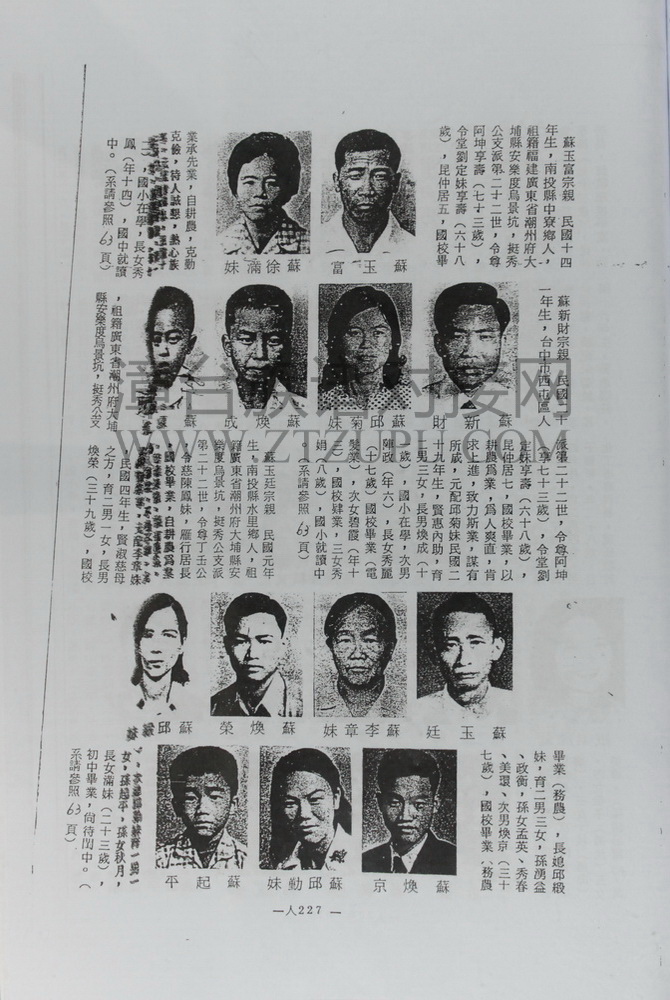 蘇玉富宗親　民國十四
年生，南投縣中寮鄉人，
祖籍福建廣東省潮州府大
埔縣安樂度烏景坑，挺秀
公支派第二十二世，令尊
阿坤享壽（七十三歲），
令堂劉定妹享壽（六十八
歲），昆仲居五，國校畢
蘇玉富
蘇徐滿妹
業承先業，自耕農，克勤
克儉，待人誠懇，熱心族
，國小在學，長女秀
鳳（年十四），國中就讀
中。（系請參照63頁）
蘇新財宗親　民國二十
一年生，台中市西屯區人
蘇新財
蘇邱菊妹
蘇煥成
蘇
，祖籍廣東省潮州府大埔
縣安樂度烏景坑，挺秀公支
派第二十二世，令尊阿坤
享七十三歲），令堂劉
定妹享壽（六十八歲），
昆仲居七，國校畢業，以
耕農為業，為人爽直，肯
求上進，致力斯業，謀有
所成，元配邱菊妹民國二
十九年生，賢惠內助，育
二男三女，長男煥成（十
歲），國小在學，次男
陳政（年六），長女秀麗
（十七歲）國校畢業（電
髮業），次女碧霞（年十
三），國校肄業，三女秀
娟（八歲），國小就讀中
。（系請參照63頁）
蘇玉廷宗親　民國元年
生，南投縣水里鄉人，祖
籍廣東省潮州府大埔縣安
樂度烏景坑，挺秀公支派
第二十二世，令尊丁壬公
，令慈陳鳳妹，雁行居長
，國校畢業，自耕農為業
李章妹
，民國四年生，賢淑慈母
之方，育二男一女，長男
煥榮（三十九歲），國校
蘇玉廷
蘇李章妹
蘇煥榮
蘇邱緞妹
畢業（務農），長媳邱緞
妹，育二男三女，孫湧益
、政衡，孫女孟英、秀春
、美環、次男煥京（三十
七歲），國校畢業（務農
蘇煥京
蘇邱勤妹
蘇起平
女，孫起平，孫女秋月，
長女滿妹（二十三歲），
初中畢業，尚待閨中。（
系請參照63頁）
—人227—
章台族谱对接网
WWW.ZTZUPU.COM